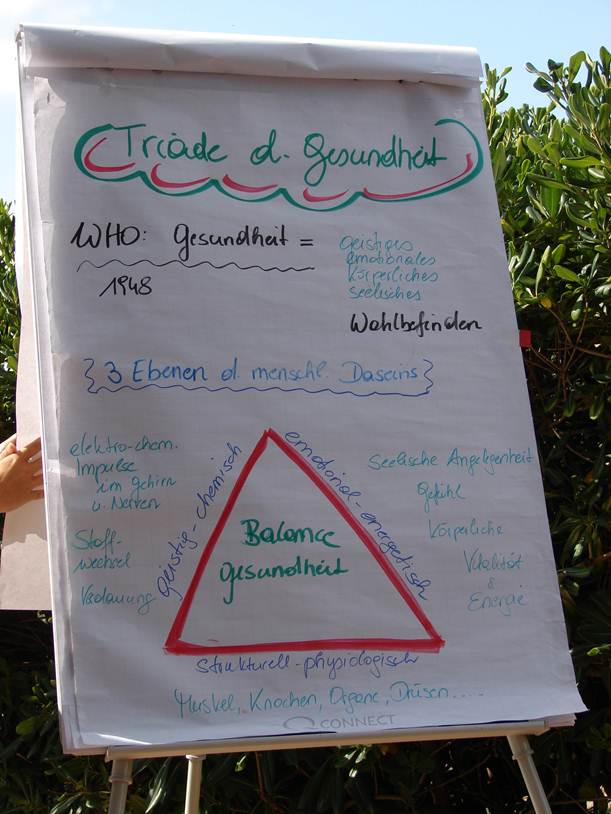 Triade d. Gesundheit
WHO: Gesundheit =
1948
geistiges
emotionales
körperliches
seelisches
Wohlbefinden
{3 Ebenen d. menschl. Daseins}
elektro-chem.
Impulse
im Gehirn
u. Nerven
Stoff-
wechsel
Verdauung
geistig-chemisch
emotional-energetisch
Seelische Angelegenheit
Gefühl
Körperliche
Vitalität
&
Energie
Balance
Gesundheit
Strukturell-physiologisch
Muskel, Knochen, Organe, Drüsen.....
CONNECT